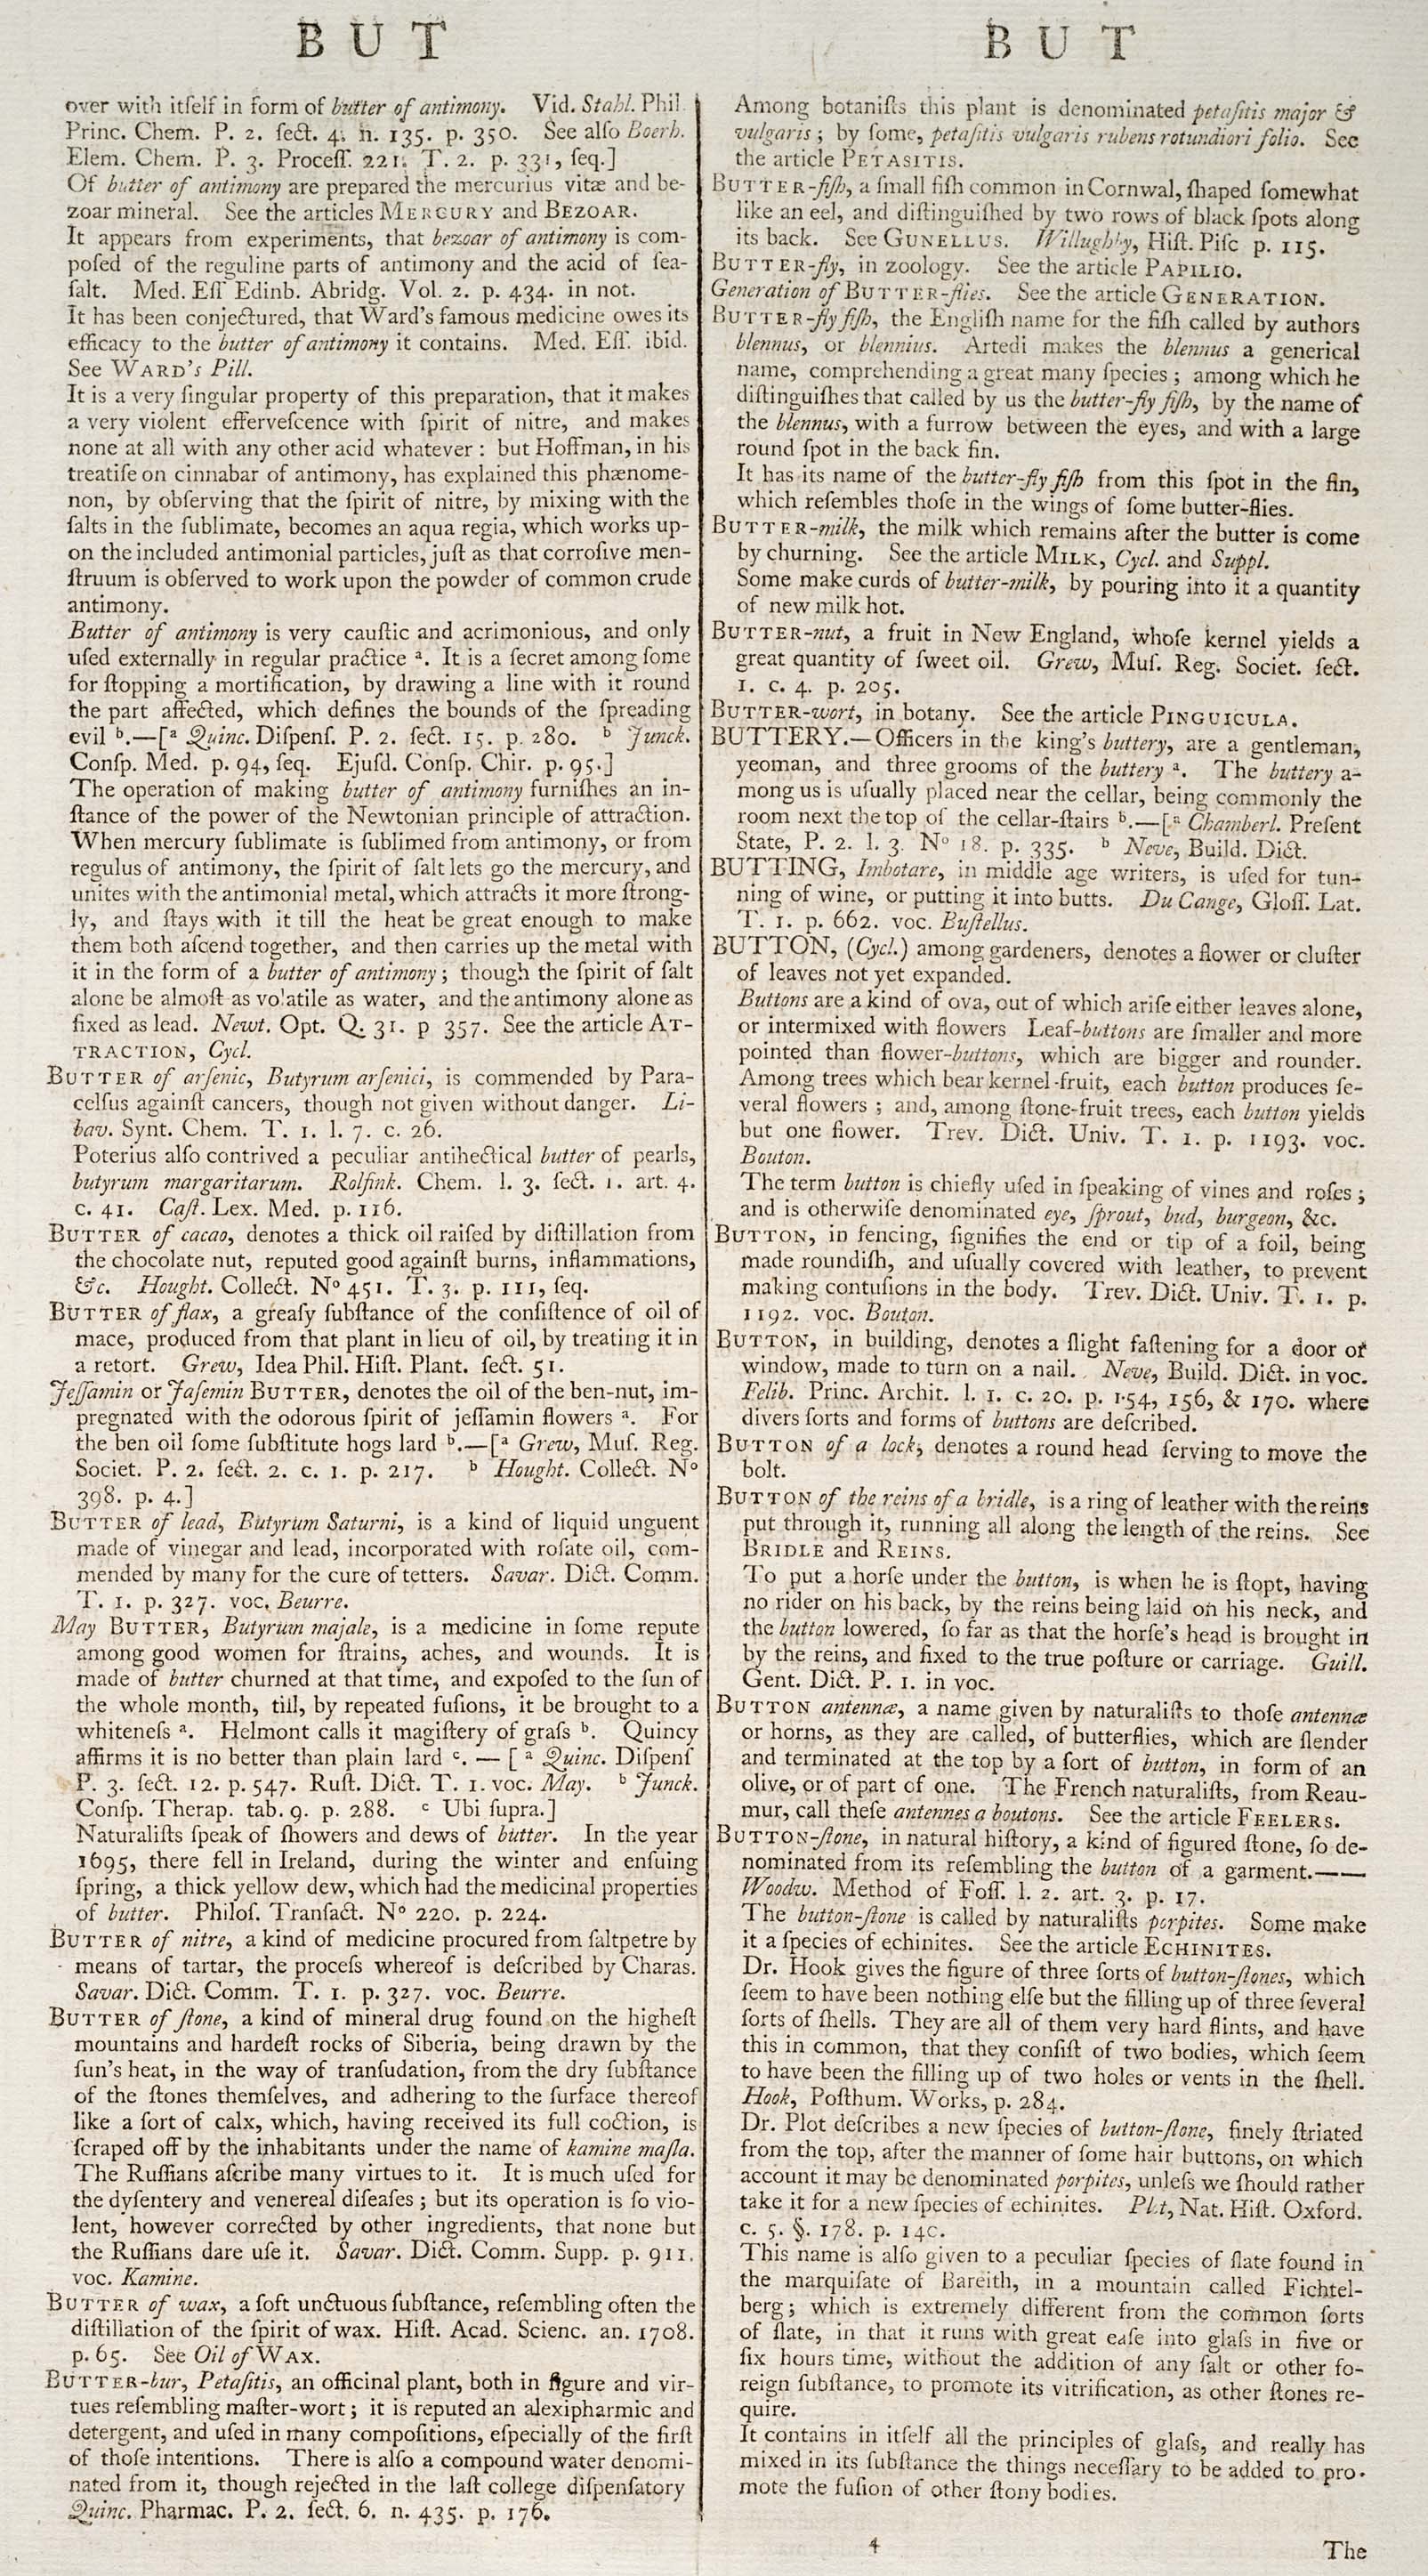 BUT
over with itſelf in form of butter of antimony. Vid. Stahl. Phil
Princ. Chem. P. 2. ſect. 4. n. 135. p. 350. See alſo Boerh.
Elem. Chem. P. 3. Proceſſ. 221. T. 2. p. 331, ſeq.]
Of butter of antimony are prepared the mercurius vitæ and be-
zoar mineral. See the articles MERCURY and BEZOAR.
It appears from experiments, that bezoar of antimony is com-
poſed of the reguline parts of antimony and the acid of ſea-
ſalt. Med. Eſſ Edinb. Abridg. Vol. 2. p. 434. in not.
It has been conjectured, that Ward's famous medicine owes its
efficacy to the butter of antimony it contains. Med. Eſſ. ibid.
See WARD's Pill.
It is a very ſingular property of this preparation, that it makes
a very violent efferveſcence with ſpirit of nitre, and makes
none at all with any other acid whatever: but Hoffman, in his
treatiſe on cinnabar of antimony, has explained this phænome-
non, by obſerving that the ſpirit of nitre, by mixing with the
ſalts in the ſublimate, becomes an aqua regia, which works up-
on the included antimonial particles, juſt as that corroſive men-
ſtruum is obſerved to work upon the powder of common crude
antimony.
Butter of antimony is very cauſtic and acrimonious, and only
uſed externally in regular practice a. It is a ſecret among ſome
for ſtopping a mortification, by drawing a line with it round
the part affected, which defines the bounds of the ſpreading
evil b.—[a Quinc. Diſpenſ. P. 2. ſect. 15. p. 280. b Junck.
Conſp. Med. p. 94, ſeq. Ejuſd. Conſp. Chir. p. 95.]
The operation of making butter of antimony furniſhes an in-
ſtance of the power of the Newtonian principle of attraction.
When mercury ſublimate is ſublimed from antimony, or from
regulus of antimony, the ſpirit of ſalt lets go the mercury, and
unites with the antimonial metal, which attracts it more ſtrong-
ly, and ſtays with it till the heat be great enough to make
them both aſcend together, and then carries up the metal with
it in the form of a butter of antimony; though the ſpirit of ſalt
alone be almoſt as volatile as water, and the antimony alone as
fixed as lead. Newt. Opt. Q. 31. p 357. See the article AT-
TRACTION, Cycl.
BUTTER of arſenic, Butyrum arſenici, is commended by Para-
celſus againſt cancers, though not given without danger. Li-
bav. Synt. Chem. T. 1. l. 7. c. 26.
Poterius alſo contrived a peculiar antihectical butter of pearls,
butyrum margaritarum. Rolfink. Chem. l. 3. ſect. 1. art. 4.
c. 41. Caſt. Lex. Med. p. 116.
BUTTER of cacao, denotes a thick oil raiſed by diſtillation from
the chocolate nut, reputed good againſt burns, inflammations,
&c. Hought. Collect. No 451. T. 3. p. 111, ſeq.
BUTTER of flax, a greaſy ſubſtance of the conſiſtence of oil of
mace, produced from that plant in lieu of oil, by treating it in
a retort. Grew, Idea Phil. Hiſt. Plant. ſect. 51.
Jeſſamin or Jaſemin BUTTER, denotes the oil of the ben-nut, im-
pregnated with the odorous ſpirit of jeſſamin flowers a. For
the ben oil ſome ſubſtitute hogs lard b.—[a Grew, Muſ. Reg.
Societ. P. 2. ſect. 2. c. 1. p. 217. b Hought. Collect. No
398. p. 4.]
BUTTER of lead, Butyrum Saturni, is a kind of liquid unguent
made of vinegar and lead, incorporated with roſate oil, com-
mended by many for the cure of tetters. Savar. Dict. Comm.
T. 1. p. 327. voc. Beurre.
May BUTTER, Butyrum majale, is a medicine in ſome repute
among good women for ſtrains, aches, and wounds. It is
made of butter churned at that time, and expoſed to the ſun of
the whole month, till, by repeated fuſions, it be brought to a
whiteneſs a. Helmont calls it magiſtery of graſs b. Quincy
affirms it is no better than plain lard c. — [a Quinc. Diſpenſ
P. 3. ſect. 12. p. 547. Ruſt. Dict. T. 1. voc. May. b Junck.
Conſp. Therap. tab. 9. p. 288. c Ubi ſupra.]
Naturaliſts ſpeak of ſhowers and dews of butter. In the year
1695, there fell in Ireland, during the winter and enſuing
ſpring, a thick yellow dew, which had the medicinal properties
of butter. Philoſ. Tranſact. No 220. p. 224.
BUTTER of nitre, a kind of medicine procured from ſaltpetre by
means of tartar, the proceſs whereof is deſcribed by Charas.
Savar. Dict. Comm. T. 1. p. 327. voc. Beurre.
BUTTER of ſtone, a kind of mineral drug found on the higheſt
mountains and hardeſt rocks of Siberia, being drawn by the
ſun's heat, in the way of tranſudation, from the dry ſubſtance
of the ſtones themſelves, and adhering to the ſurface thereof
like a ſort of calx, which, having received its full coction, is
ſcraped off by the inhabitants under the name of kamine maſla.
The Ruſſians aſcribe many virtues to it. It is much uſed for
the dyſentery and venereal diſeaſes; but its operation is ſo vio-
lent, however corrected by other ingredients, that none but
the Ruſſians dare uſe it. Savar. Dict. Comm. Supp. p. 911.
voc. Kamine.
BUTTER of wax, a ſoft unctuous ſubſtance, reſembling often the
diſtillation of the ſpirit of wax. Hiſt. Acad. Scienc. an. 1708.
p. 65. See Oil of WAX.
BUTTER-bur, Petaſitis, an officinal plant, both in figure and vir-
tues reſembling maſter-wort; it is reputed an alexipharmic and
detergent, and uſed in many compoſitions, eſpecially of the firſt
of thoſe intentions. There is alſo a compound water denomi-
nated from it, though rejected in the laſt college diſpenſatory
Quinc. Pharmac. P. 2. ſect. 6. n. 435. p. 176.
BUT
Among botaniſts this plant is denominated petaſitis major &
vulgaris; by ſome, petaſitis vulgaris rubens rotundiori folio. See
the article PETASITIS.
BUTTER-fiſh, a ſmall fiſh common in Cornwal, ſhaped ſomewhat
like an eel, and diſtinguiſhed by two rows of black ſpots along
its back. See GUNELLUS. Willughby, Hiſt. Piſc p. 115.
BUTTER-fly, in zoology. See the article PAPILIO.
Generation of BUTTER-flies. See the article GENERATION.
BUTTER-fly fiſh, the Engliſh name for the fiſh called by authors
blennus, or blennius. Artedi makes the blennus a generical
name, comprehending a great many ſpecies; among which he
diſtinguiſhes that called by us the butter-fly fiſh, by the name of
the blennus, with a furrow between the eyes, and with a large
round ſpot in the back fin.
It has its name of the butter-fly fiſh from this ſpot in the fin,
which reſembles thoſe in the wings of ſome butter-flies.
BUTTER-milk, the milk which remains after the butter is come
by churning. See the article MILK, Cycl. and Suppl.
Some make curds of butter-milk, by pouring into it a quantity
of new milk hot.
BUTTER-nut, a fruit in New England, whoſe kernel yields a
great quantity of ſweet oil. Grew, Muſ. Reg. Societ. ſect.
1. c. 4. p. 205.
BUTTER-wort, in botany. See the article PINGUICULA.
BUTTERY.—Officers in the king's buttery, are a gentleman,
yeoman, and three grooms of the buttery a. The buttery a-
mong us is uſually placed near the cellar, being commonly the
room next the top of the cellar-ſtairs b.—[a Chamberl. Preſent
State, P. 2. l. 3. No 18. p. 335. b Neve, Build. Dict.
BUTTING, Imbotare, in middle age writers, is uſed for tun-
ning of wine, or putting it into butts. Du Cange, Gloſſ. Lat.
T. 1. p. 662. voc. Buſtellus.
BUTTON, (Cycl.) among gardeners, denotes a flower or cluſter
of leaves not yet expanded.
Buttons are a kind of ova, out of which ariſe either leaves alone,
or intermixed with flowers Leaf-buttons are ſmaller and more
pointed than flower-buttons, which are bigger and rounder.
Among trees which bear kernel-fruit, each button produces ſe-
veral flowers; and, among ſtone-fruit trees, each button yields
but one flower. Trev. Dict. Univ. T. 1. p. 1193. voc.
Bouton.
The term button is chiefly uſed in ſpeaking of vines and roſes;
and is otherwiſe denominated eye, ſprout, bud, burgeon, &c.
BUTTON, in fencing, ſignifies the end or tip of a foil, being
made roundiſh, and uſually covered with leather, to prevent
making contuſions in the body. Trev. Dict. Univ. T. 1. p.
1192. voc. Bouton.
BUTTON, in building, denotes a ſlight faſtening for a door or
window, made to turn on a nail. Neve, Build. Dict. in voc.
Felib. Princ. Archit. l. 1. c. 20. p. 154, 156, & 170. where
divers ſorts and forms of buttons are deſcribed.
BUTTON of a lock, denotes a round head ſerving to move the
bolt.
BUTTON of the reins of a bridle, is a ring of leather with the reins
put through it, running all along the length of the reins. See
BRIDLE and REINS.
To put a horſe under the button, is when he is ſtopt, having
no rider on his back, by the reins being laid on his neck, and
the button lowered, ſo far as that the horſe's head is brought in
by the reins, and fixed to the true poſture or carriage. Guill.
Gent. Dict. P. 1. in voc.
BUTTON antennæ, a name given by naturaliſts to thoſe antennæ
or horns, as they are called, of butterflies, which are ſlender
and terminated at the top by a ſort of button, in form of an
olive, or of part of one. The French naturaliſts, from Reau-
mur, call theſe antennes a boutons. See the article FEELERS.
BUTTON-ſtone, in natural hiſtory, a kind of figured ſtone, ſo de-
nominated from its reſembling the button of a garment.——
Woodw. Method of Foſſ. l. 2. art. 3. p. 17.
The button-ſtone is called by naturaliſts porpites. Some make
it a ſpecies of echinites. See the article ECHINITES.
Dr. Hook gives the figure of three ſorts of button-ſtones, which
ſeem to have been nothing elſe but the filling up of three ſeveral
ſorts of ſhells. They are all of them very hard flints, and have
this in common, that they conſiſt of two bodies, which ſeem
to have been the filling up of two holes or vents in the ſhell.
Hook, Poſthum. Works, p. 284.
Dr. Plot deſcribes a new ſpecies of button-ſtone, finely ſtriated
from the top, after the manner of ſome hair buttons, on which
account it may be denominated porpites, unleſs we ſhould rather
take it for a new ſpecies of echinites. Plot, Nat. Hiſt. Oxford.
c. 5. §. 178. p. 140.
This name is alſo given to a peculiar ſpecies of ſlate found in
the marquiſate of Bareith, in a mountain called Fichtel-
berg; which is extremely different from the common ſorts
of ſlate, in that it runs with great eaſe into glaſs in five or
ſix hours time, without the addition of any ſalt or other fo-
reign ſubſtance, to promote its vitrification, as other ſtones re-
quire.
It contains in itſelf all the principles of glaſs, and really has
mixed in its ſubſtance the things neceſſary to be added to pro-
mote the fuſion of other ſtony bodies.
4
The